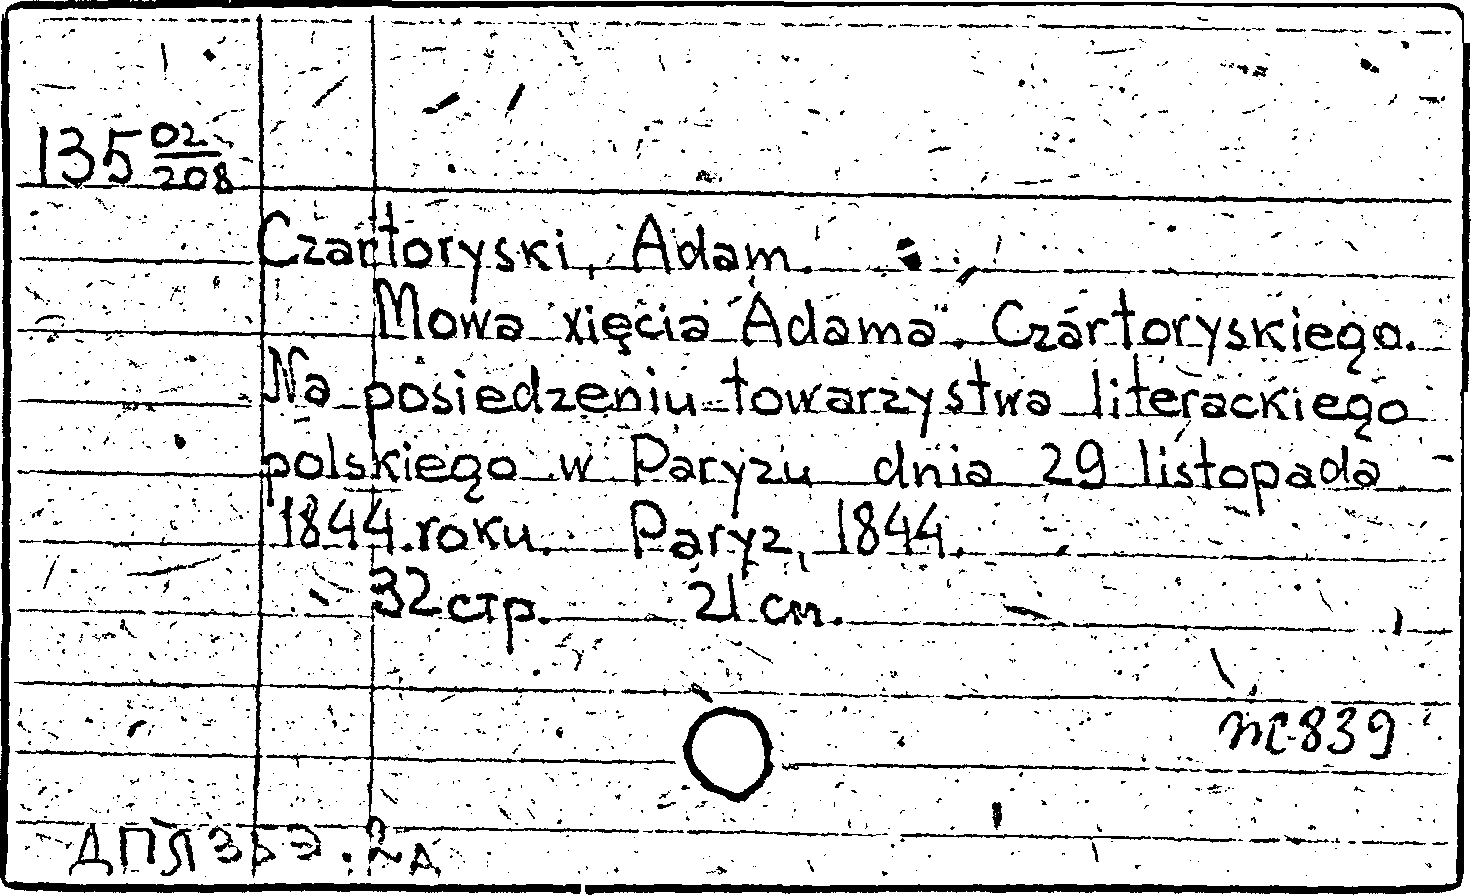 135 02/208
Czartoryski, Adam.
Mowa xięcia Adama Czartoryskiego.
Na posiedzeniu towarzystwa literackiego
polskiego w Paryzu dnia 29 listopada
1844 roku. Paryz, 1844.
32 стр. 21 см.
839